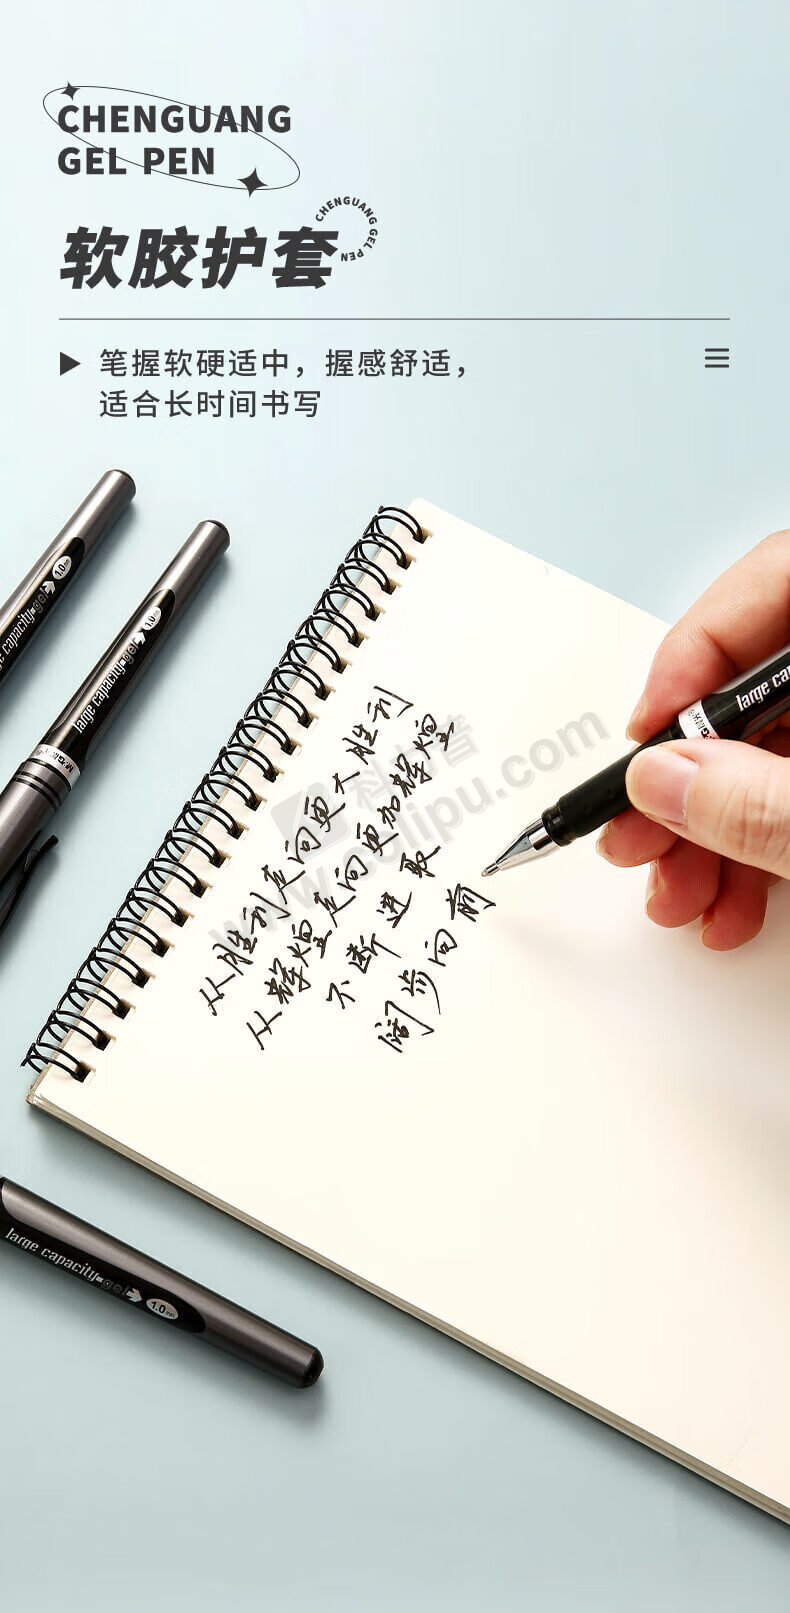 CHENGUANG
GEL PEN
CHENGUANG GEL PEN
软胶护套
笔握软硬适中，握感舒适，
适合长时间书写
1.0mm
large capacity gel
1.0mm
large capacity gel
M&G
从胜利走向更大胜利
从辉煌走向更加辉煌
不断进取
阔步向前
科力普
www.colipu.com
large ca
M&G晨光
large capacity gel
1.0mm